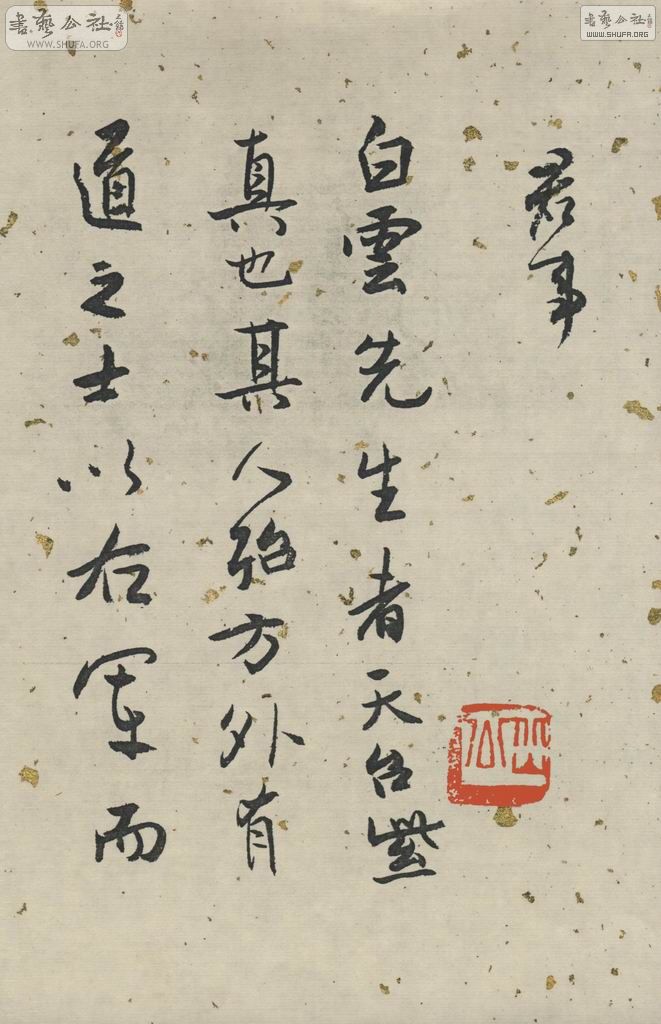 君事
白雲先生者天台紫
真也其人殆方外有
道之士以右軍而
書藝公社
WWW.SHUFA.ORG
書藝公社
WWW.SHUFA.ORG